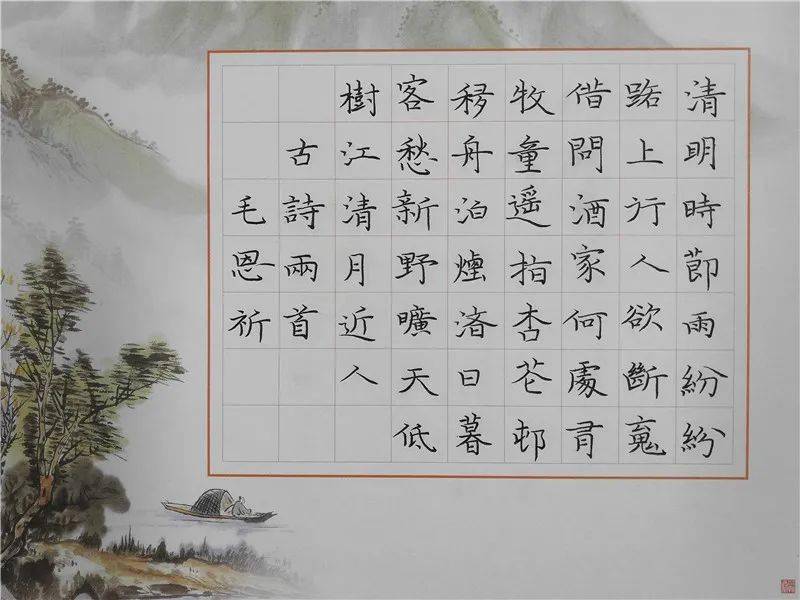 清明時節雨紛紛
路上行人欲斷魂
借問酒家何處有
牧童遥指杏花邨
移舟泊煙渚日暮
客愁新野曠天低
樹江清月近人
古詩兩首
毛恩祈